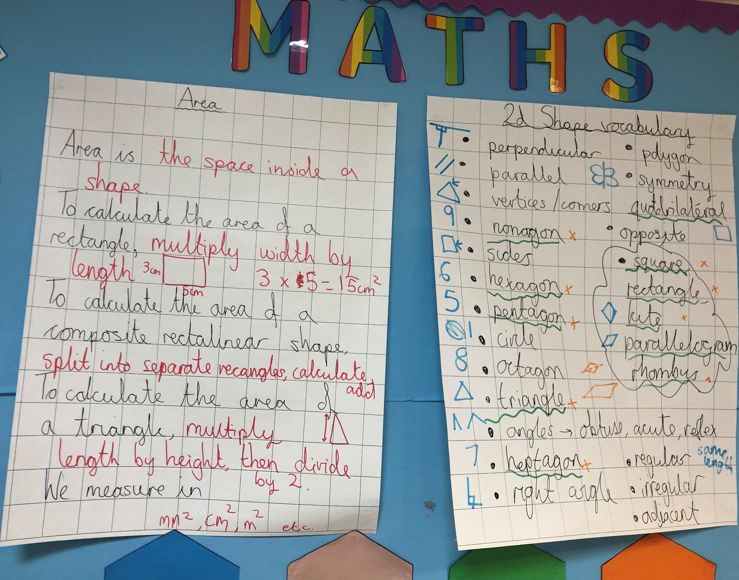 MATHS
Area
Area is the space inside a
shape.
To calculate the area of a
rectangle, multiply width by
length 3cm 5cm 3 × 5 = 15cm²
To calculate the area of a
composite rectalinear shape,
split into separate recangles, calculate,
add
To calculate the area of
a triangle, multiply
length by height, then divide
by 2.
We measure in
mm², cm², m² etc.
2d Shape vocabulary
• perpendicular
• parallel
• vertices / corners
9 • nonagon
• sides
6 • hexagon
5 • pentagon
1 • circle
8 • octagon
• triangle
• angles → obtuse, acute, reflex
7 • heptagon
• right angle
• polygon
• symmetry
quadrilateral
• opposite
• square
rectangle
kite
parallelogram
rhombus
• regular same length
• irregular
• adjacent